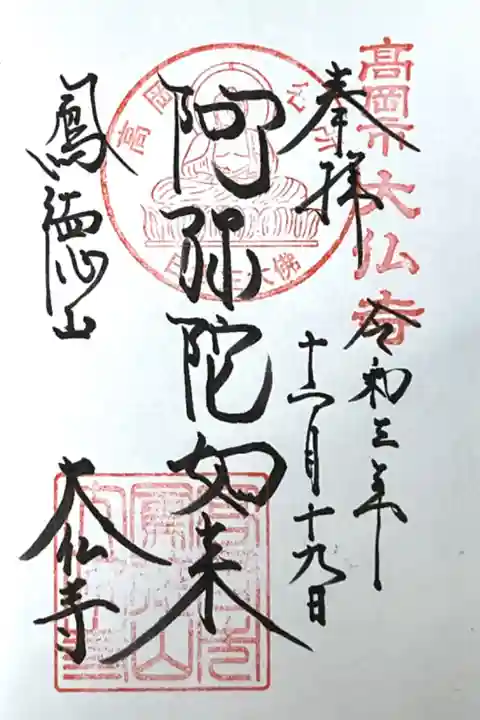 高岡市大仏寺
奉拝
令和三年
十一月十九日
阿弥陀如来
鳳徳山
大仏寺